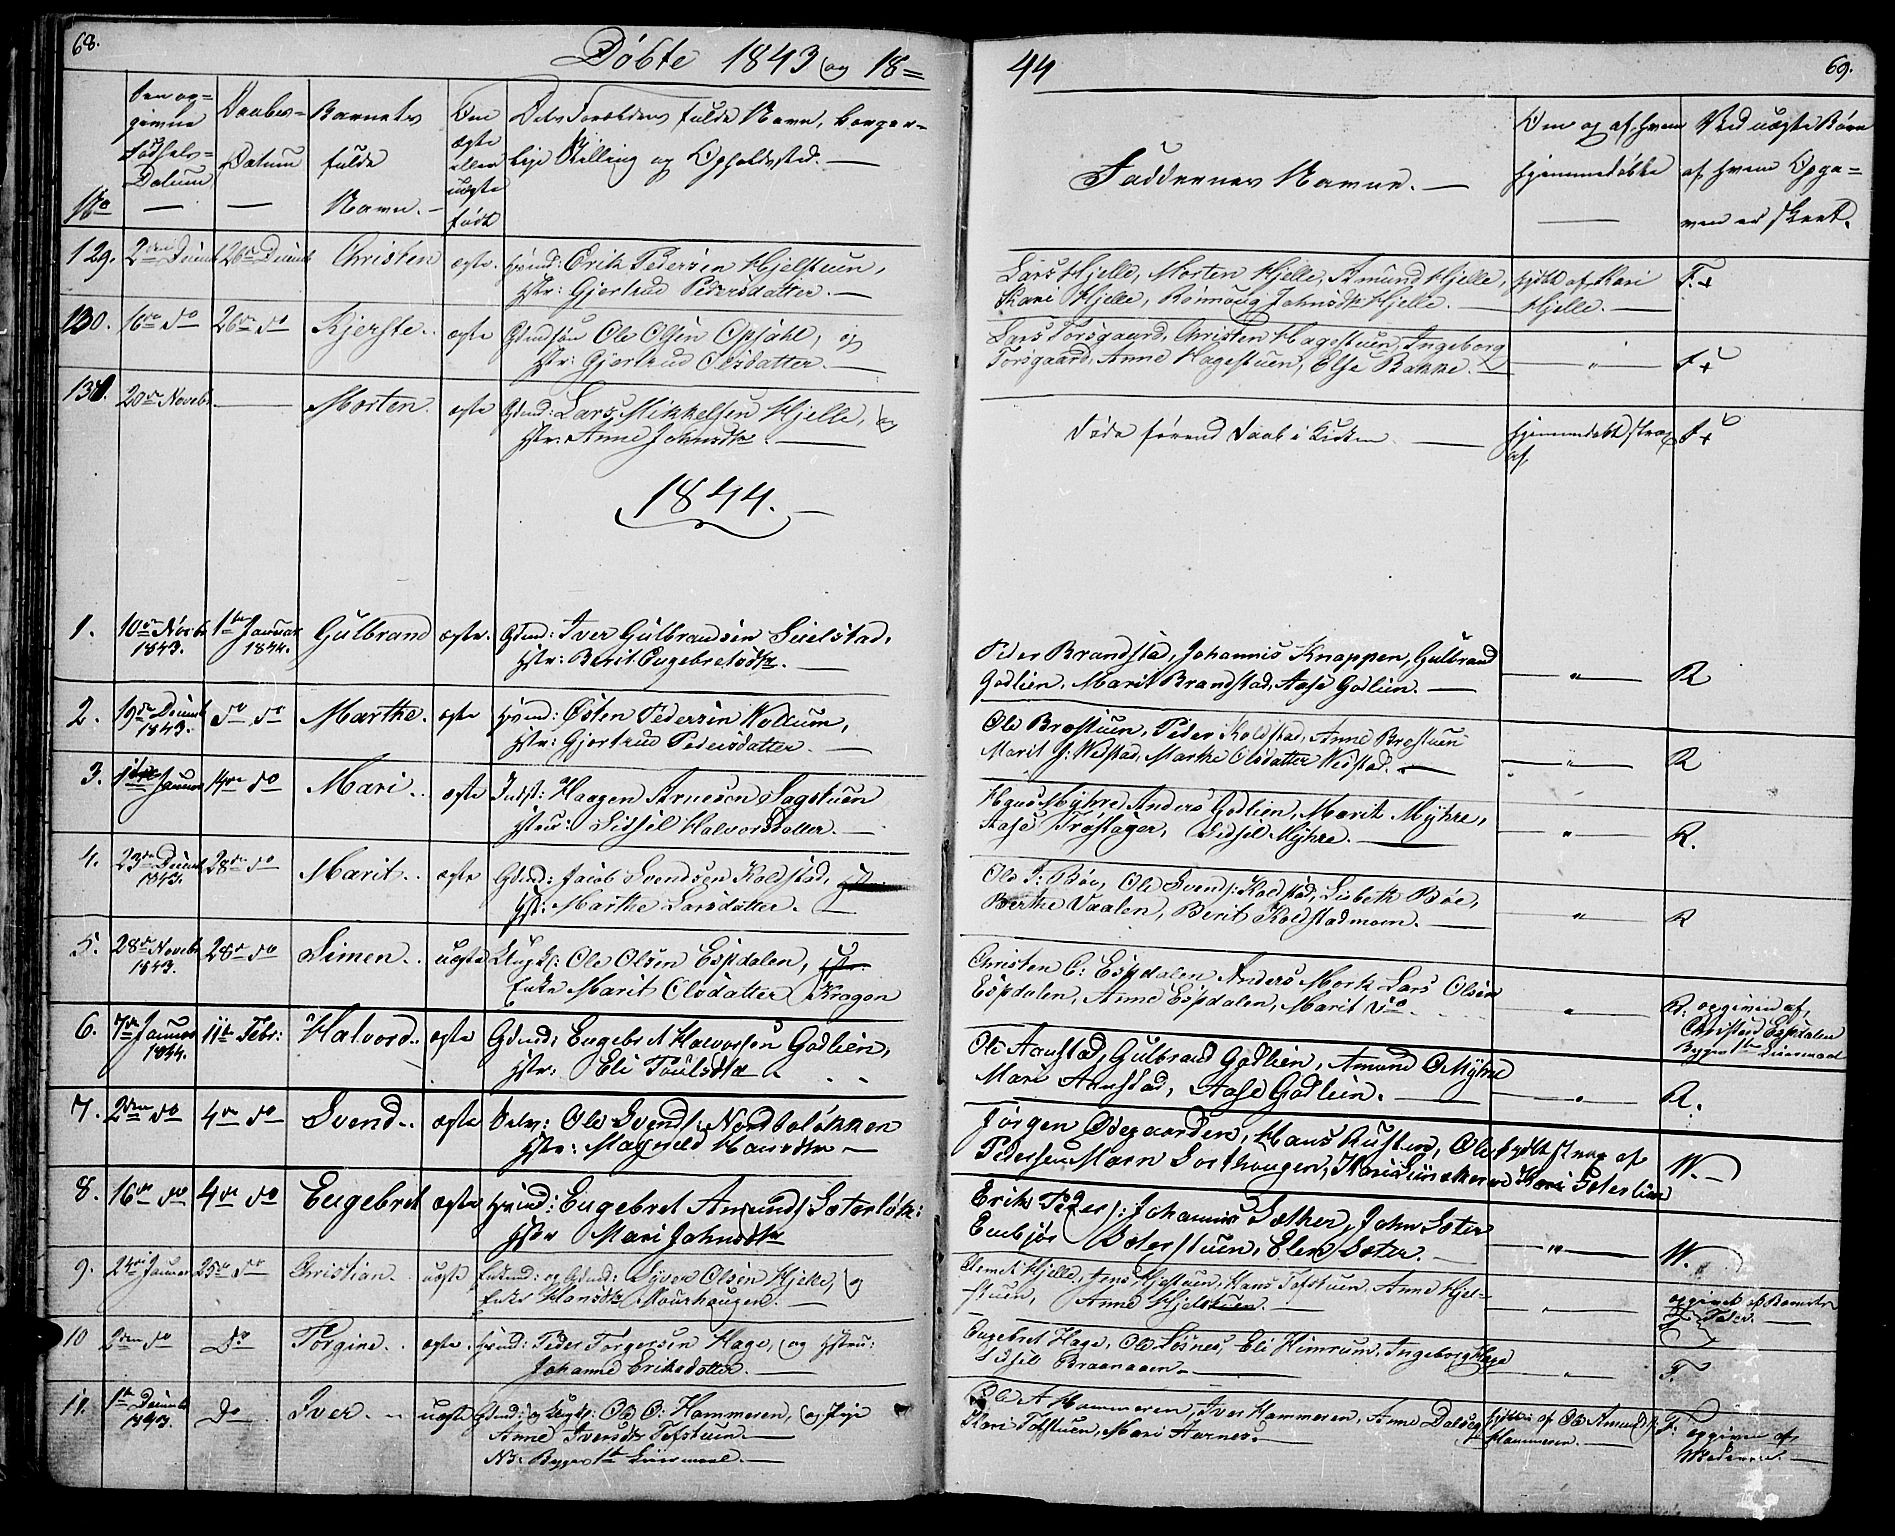 68.
Døbte 1843 og 18=
44
69.
No
Den op=
givne
Fødsels=
Datum
Daabs=
Datum
Barnets
fulde
Navn.
Om
ægte
eller
uægte
født
Forældrenes fulde Navn, borger=
lige Stilling og Opholdssted.
Faddernes Navne.
Om og af hvem
hjemmedøbte
Ved uægte Børn
af hvem Opga=
ven er skeet.
129. 2den Decemb 26de Decemb Christen ægte. Hmd: Erik Pedersen Hjelstuen,
Hstr: Gjertrud Pedersdatter.
Lars Hjelle, Morten Hjelle, Amund Hjelle,
Kari Hjelle, Rønnaug Johnsdtr Hjelle.
hjdbt af Kari
Hjelle.
F.+
130. 16de do 26de do Kjersti. ægte Ole Olsen Opsahl, og
Hstr: Gjertrud Olsdatter.
Lars Torsgaard, Christen Hagestuen, Ingeborg
Torsgaard, Anne Hagestuen, Else Bakke.
"
F+
131. 20de Novebr Morten. ægte Gdmd: Lars Mikkelsen Hjelle, og
Hstr: Anne Johnsdtr.
Døde førend Daab i Kirken
hjemmedøbt strax
af
F+
1844.
1. 10de Novbr 1ste Januar Gulbrand ægte. Gdmd: Iver Gulbrandsen Seielstad,
1843. 1844. Hstr: Berit Engebretsdtr.
Peder Brandstad, Johannis Knappen, Gulbrand
Godlien, Marit Brandstad, Aase Godlien.
"
R
2. 19de Decemb do do Marthe. ægte Hmd: Østen Pedersen Kollum,
1843. Hstr: Gjertrud Pedersdatter.
Ole Brestuen, Peder Kolstad, Anne Brestuen
Marit J: Veistad, Marthe Olsdatter Veistad.
"
R
3. Januar 14de do Mari. ægte Indst: Haagen Arnesen Sagstuen
Hstru: Sidsel Halvorsdatter.
Hans Myhre, Anders Godlien, Marit Myhre,
Aase Trøstager, Sidsel Myhre.
"
R.
4. 23de Decemb 28de do Marit. ægte Gdmd: Jacob Svendsen Kolstad,
1843. Hst: Marthe Larsdatter.
Ole J: Bøe, Ole Svends: Kolstad, Lisbeth Bøe,
Berthe Vaalen, Berit Kolstadmoen.
"
R
5. 28de Novebr 28de do Simen. uægte Ungk: Ole Olsen Espdalen,
1843. Enke Marit Olsdatter Kragen
Christen C: Espdalen Anders Mork Lars Olsen
Espdalen, Anne Espdalen, Marit do
"
R. opgiven af
Christen Espdalen
Begges 1te Leiermaal
6. 7de Januar 11te Febr: Halvord. ægte Gdmd: Engebret Halvorsen Godlien,
1844. Hstr: Eli Poulsdtr
Ole Aanstad, Gulbrand Godlien, Amund O Myhre
Mari Aanstad, Aase Godlien.
"
R.
7. 2den do 4de do Svend. ægte Ole Svends: Nordbeløkken
Hstr: Magnild Hansdtr
Jørgen Odegaarden, Hans Rusten, Ole
Pedersen Moen Sorthaugen, Kari
hjdbt strax af
Kari Seterlien
W.
8. 16de do 4de do Engebret ægte Hmd: Engebret Amunds Seterløk:
Hstr Mari Johnsdtr
Erik Peders: Johannis Sæther, John Seter
Embjør Seterstuen, Elen Seter.
"
W.
9. 24de Januar 25de do Christian. uægte Enkmd: og Gdmd: Syver Olsen Hjelle, og
Enke Hansdtr Mourhaugen.
Arne Hjelle, Jens Hjelstuen, Hans Tofstuen, Anne Hjel-
stuen, Anne Hjelstuen.
"
opgivet af Barnets
Fader.
10 2den do Do Torgine. ægte. Hmd: Peder Torgersen Hage, og Hstru:
Johanne Eriksdatter.
Engebret Hage, Ole Løsnes, Eli Kimrum, Ingeborg Hage
Sidsel Braanaaen.
"
F.
11. 1ste Decemb Do Iver. uægte Gdmd: og Ungk: Ole O: Hammeren, og Pige
1843. Anne Iversdtr Tofstuen
NB: Begges 1te Leiermaal.
Ole A Hammeren, Iver Hammeren, Anne Dalseg,
Kari Tofstuen, Mari Aarnes.
hjdbt af Ole Amunds:
Hammeren.
F. opgiven af
Moderen.